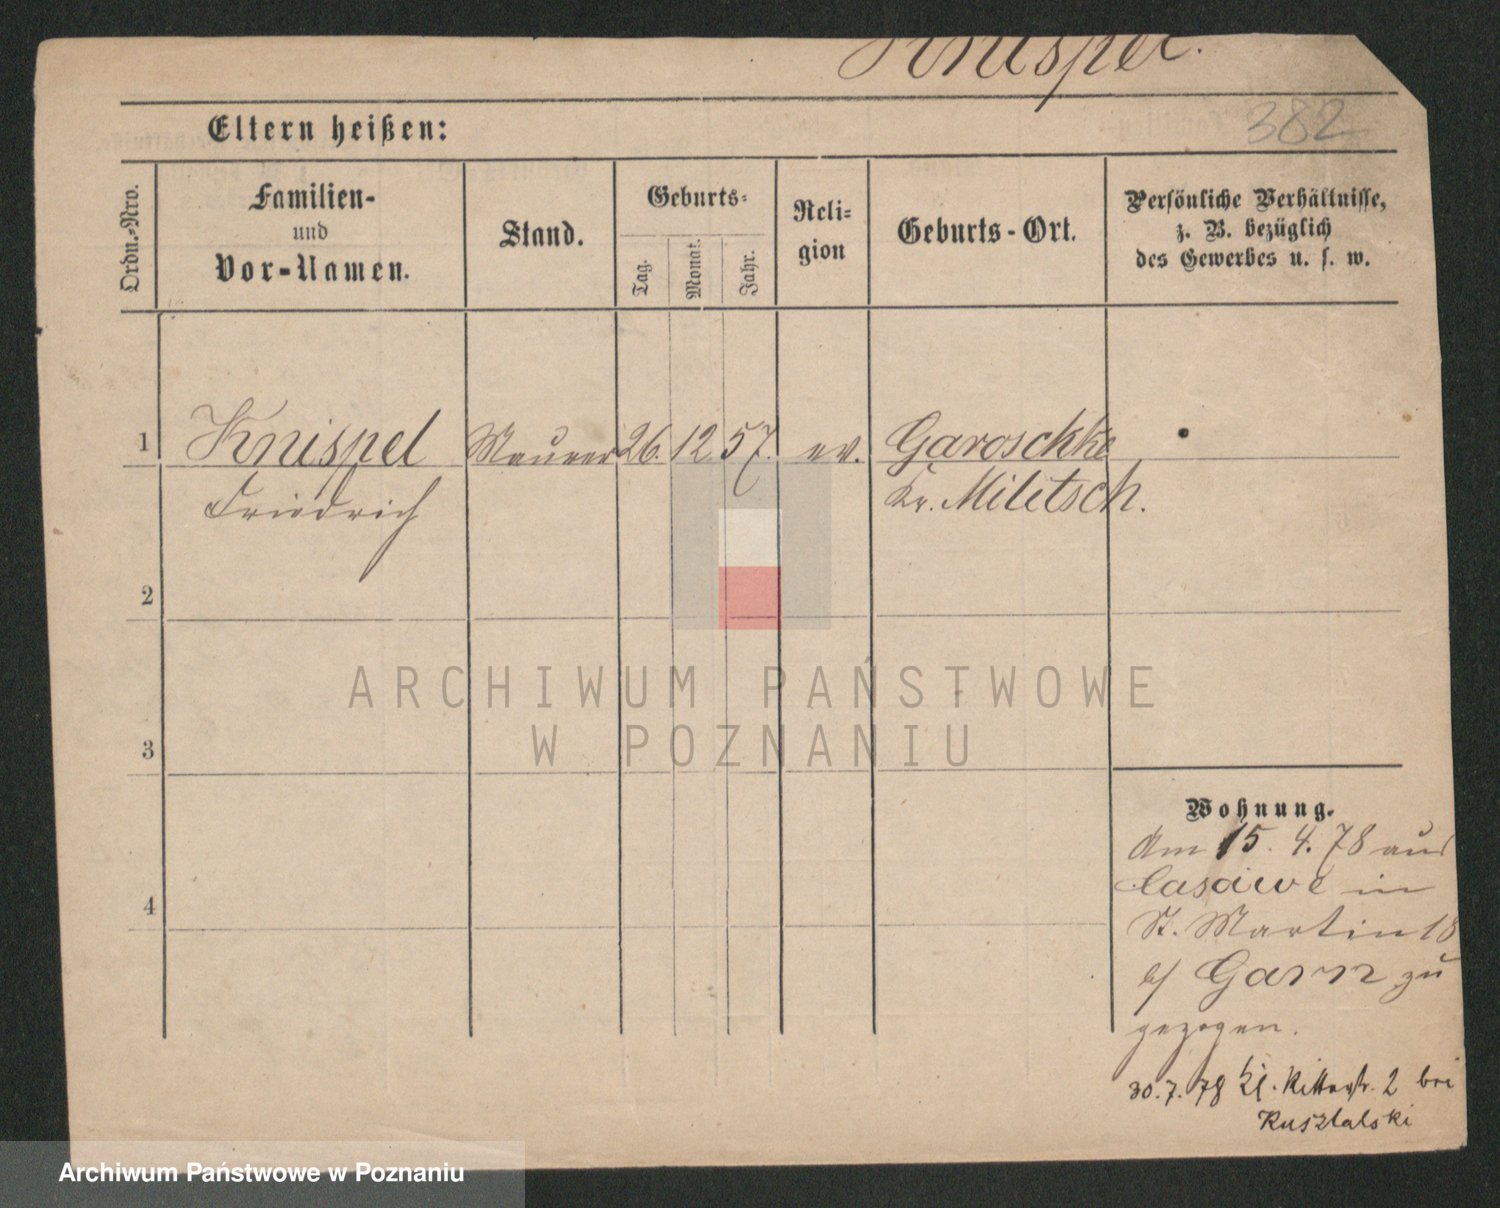 Knispel.
382
Eltern heißen:
Ordn.-Nro.
Familien-
und
Vor-Namen.
Stand.
Geburts-
Tag.
Monat.
Jahr.
Reli-
gion
Geburts-Ort.
Persönliche Verhältnisse,
z. B. bezüglich
des Gewerbes u. s. w.
1 Knispel Maurer 26. 12. 57. ev. Garoschke
Friedrich Kr. Militsch.
2
ARCHIWUM PAŃSTWOWE
W POZNANIU
3
Wohnung.
Am 15. 4. 78 aus
in
4
St. Martin 18
b/ Garn zu
gezogen.
30. 7. 78 Kl. Ritterstr. 2 bei
Rusztalski
Archiwum Państwowe w Poznaniu